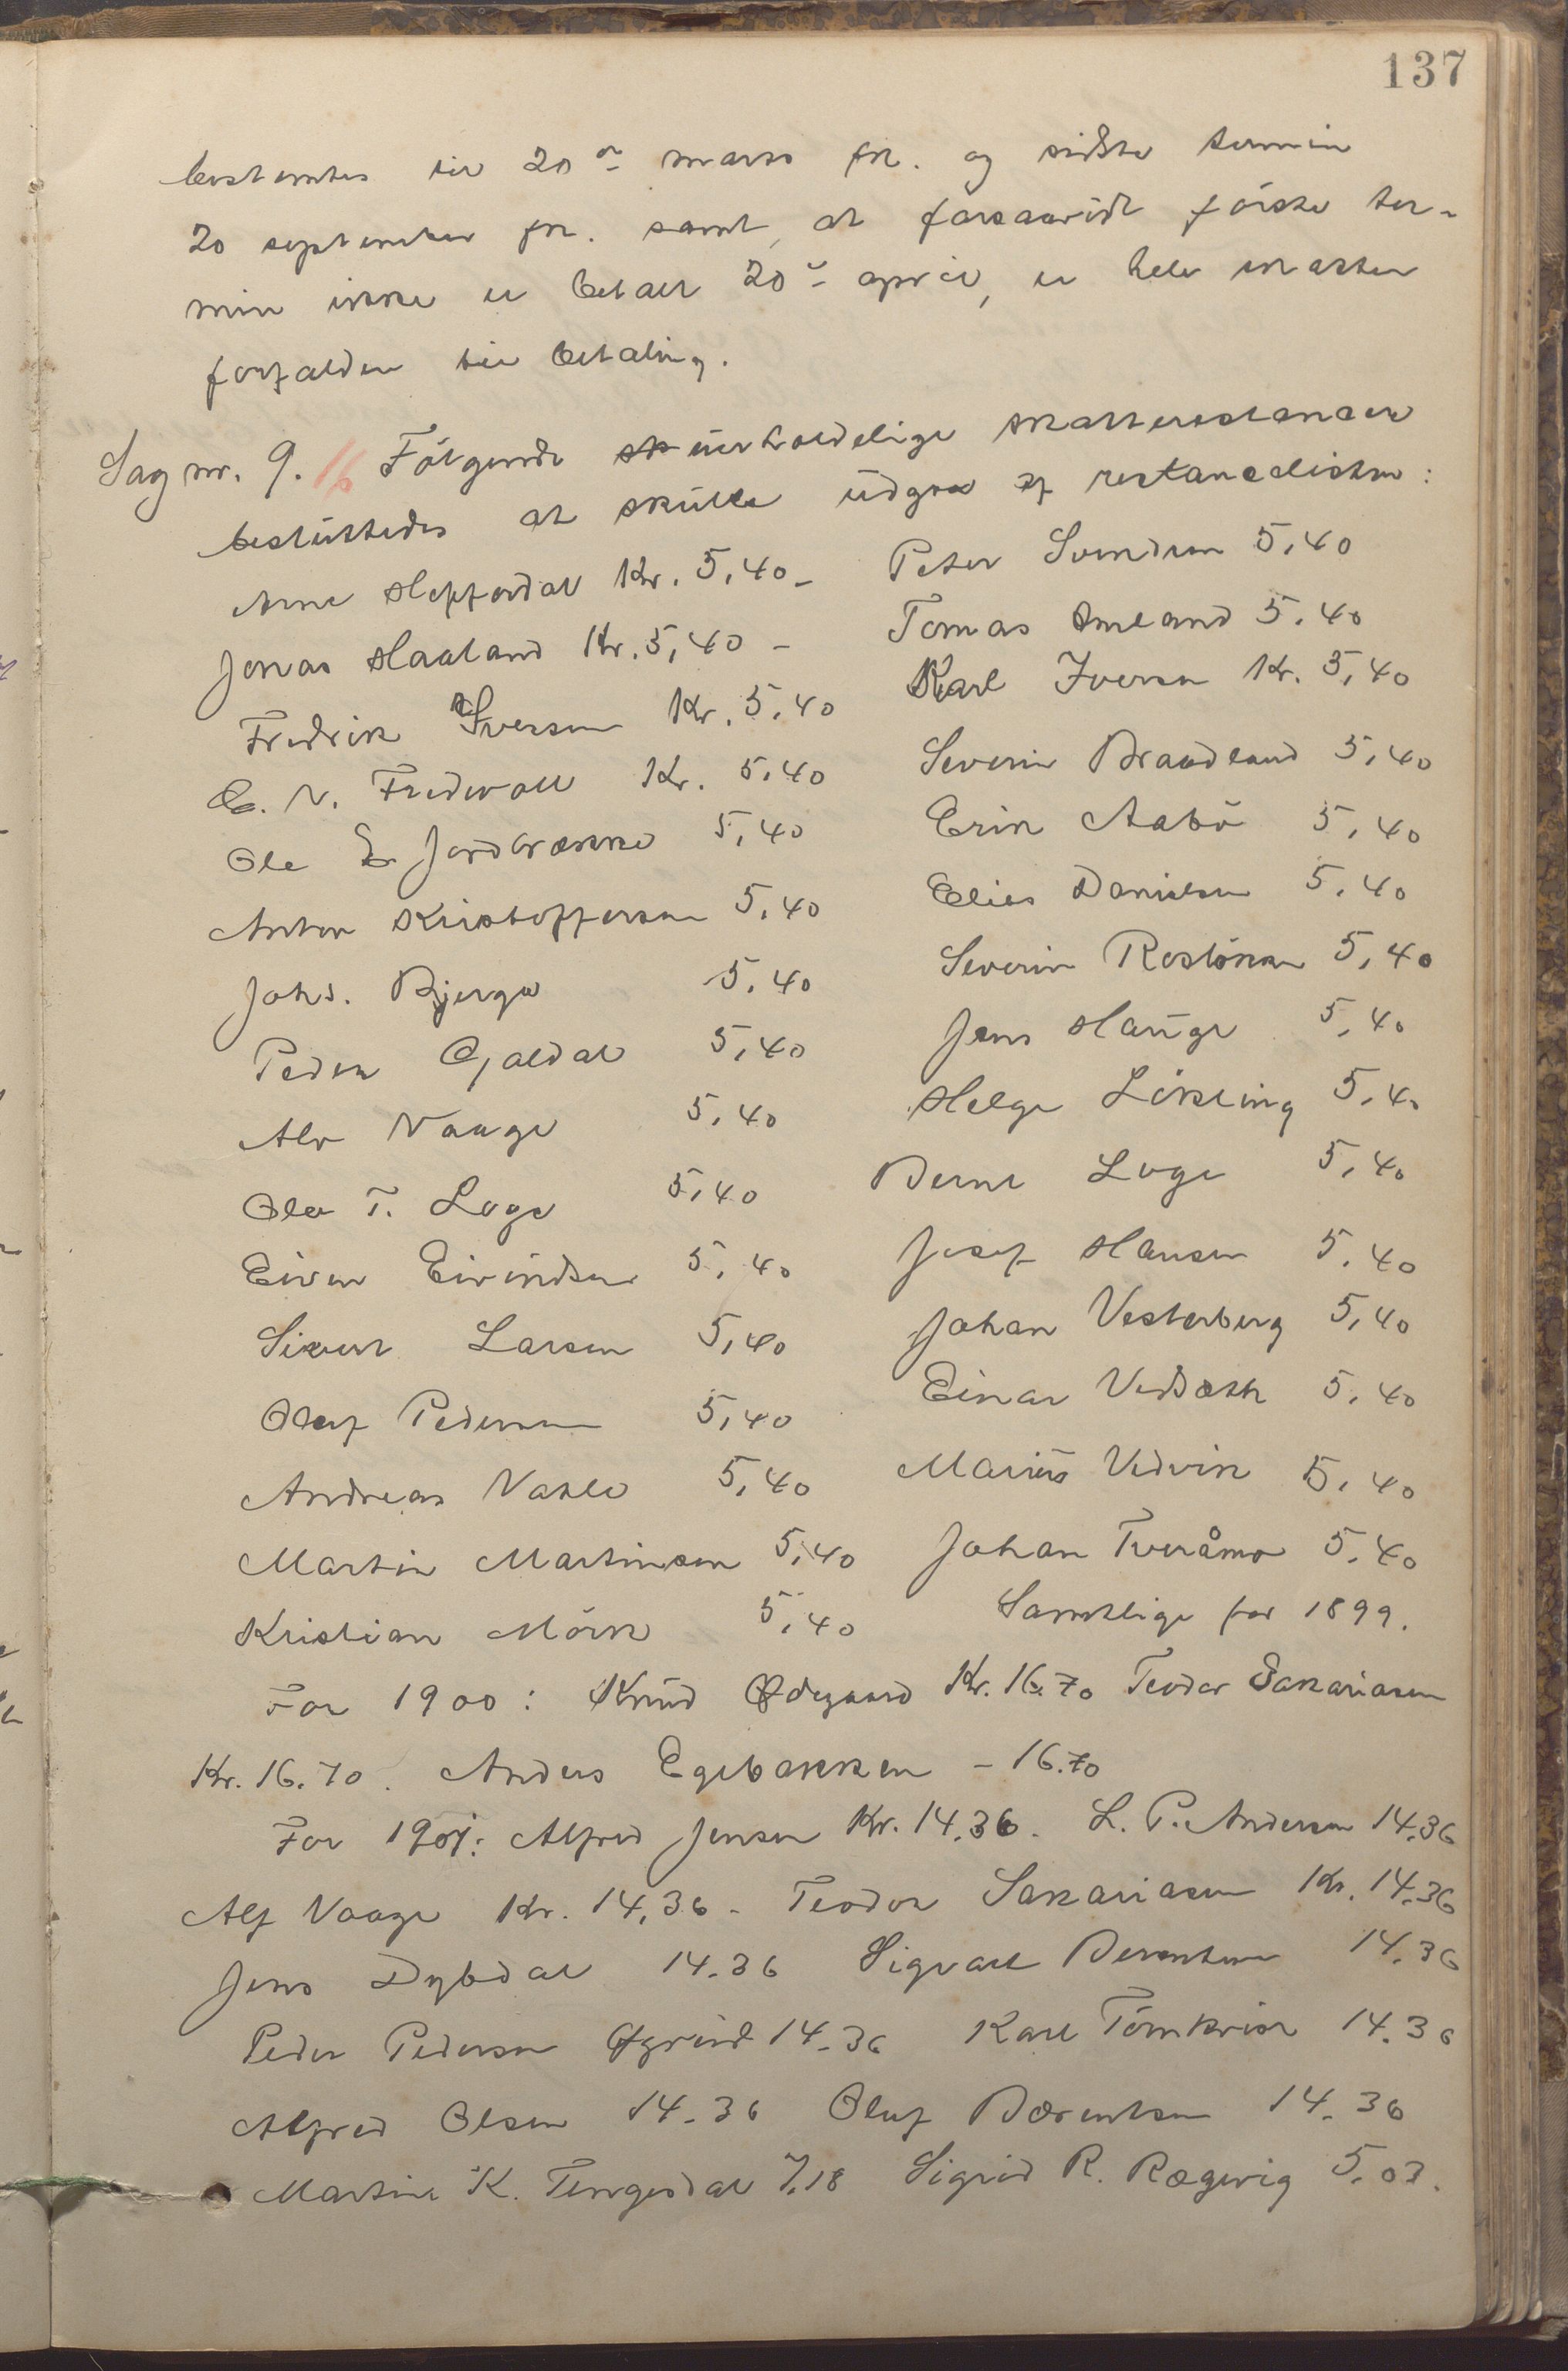 137
bestemtes til 20de mars fk. og sidste termin
20 september fk. samt, at forsaavidt første ter-
min ikke er betalt 20de april, er hele skatten
forfalden til betaling.
Sag nr. 9. 16 Følgende uerholdelige skatterestancer
besluttedes at skulle udgaa af restancelisten:
Arne Hefferdal Kr. 5,40 - Peter Svendsen 5,40
Jonas Haaland Kr. 5,40 - Tomas Omland 5,40
Fredrik Iversen Kr. 5,40 Karl Iversen Kr. 5,40
C. N. Fredwall Kr. 5,40 Severin Braadland 5,40
Ole E Jordbrække 5,40 Erik Aabø 5,40
Anton Kristoffersen 5,40 Elias Danielsen 5,40
Johs. Bjerga 5,40 Severin Rostøkken 5,40
Peder Gjaldal 5,40 Jens Hauge 5,40
Alv Vaage 5,40 Helge Løkling 5,40
Ola T. Loge 5,40 Bernt Loge 5,40
Eiven Eivindsen 5,40 Josef Hansen 5,40
Sivert Larsen 5,40 Johan Vesterberg 5,40
Oluf Pedersen 5,40 Einar Vedsæth 5,40
Andreas Vasle 5,40 Marius Vedvik 5,40
Martin Martinsen 5,40 Johan Tveråmo 5,40
Kristian Mörk 5,40 Samtlige for 1899.
For 1900: Knud Ødegaard Kr. 16.70 Teodor Sakariasen
Kr. 16.70. Anders Egebakken - 16.70
For 1901: Alfred Jensen Kr. 14.36. L. P. Andersen 14.36
Alf Vaage Kr. 14,36 - Teodor Sakariasen Kr. 14.36
Jens Dybdal 14.36 Sigvart Berentsen 14.36
Peder Pedersen Øgreid 14.36 Karl 14.36
Alfred Olsen 14.36 Oluf Bærentsen 14.36
Martin K. Tengesdal 7.18 Sigrid R. Rægevig 5.03.